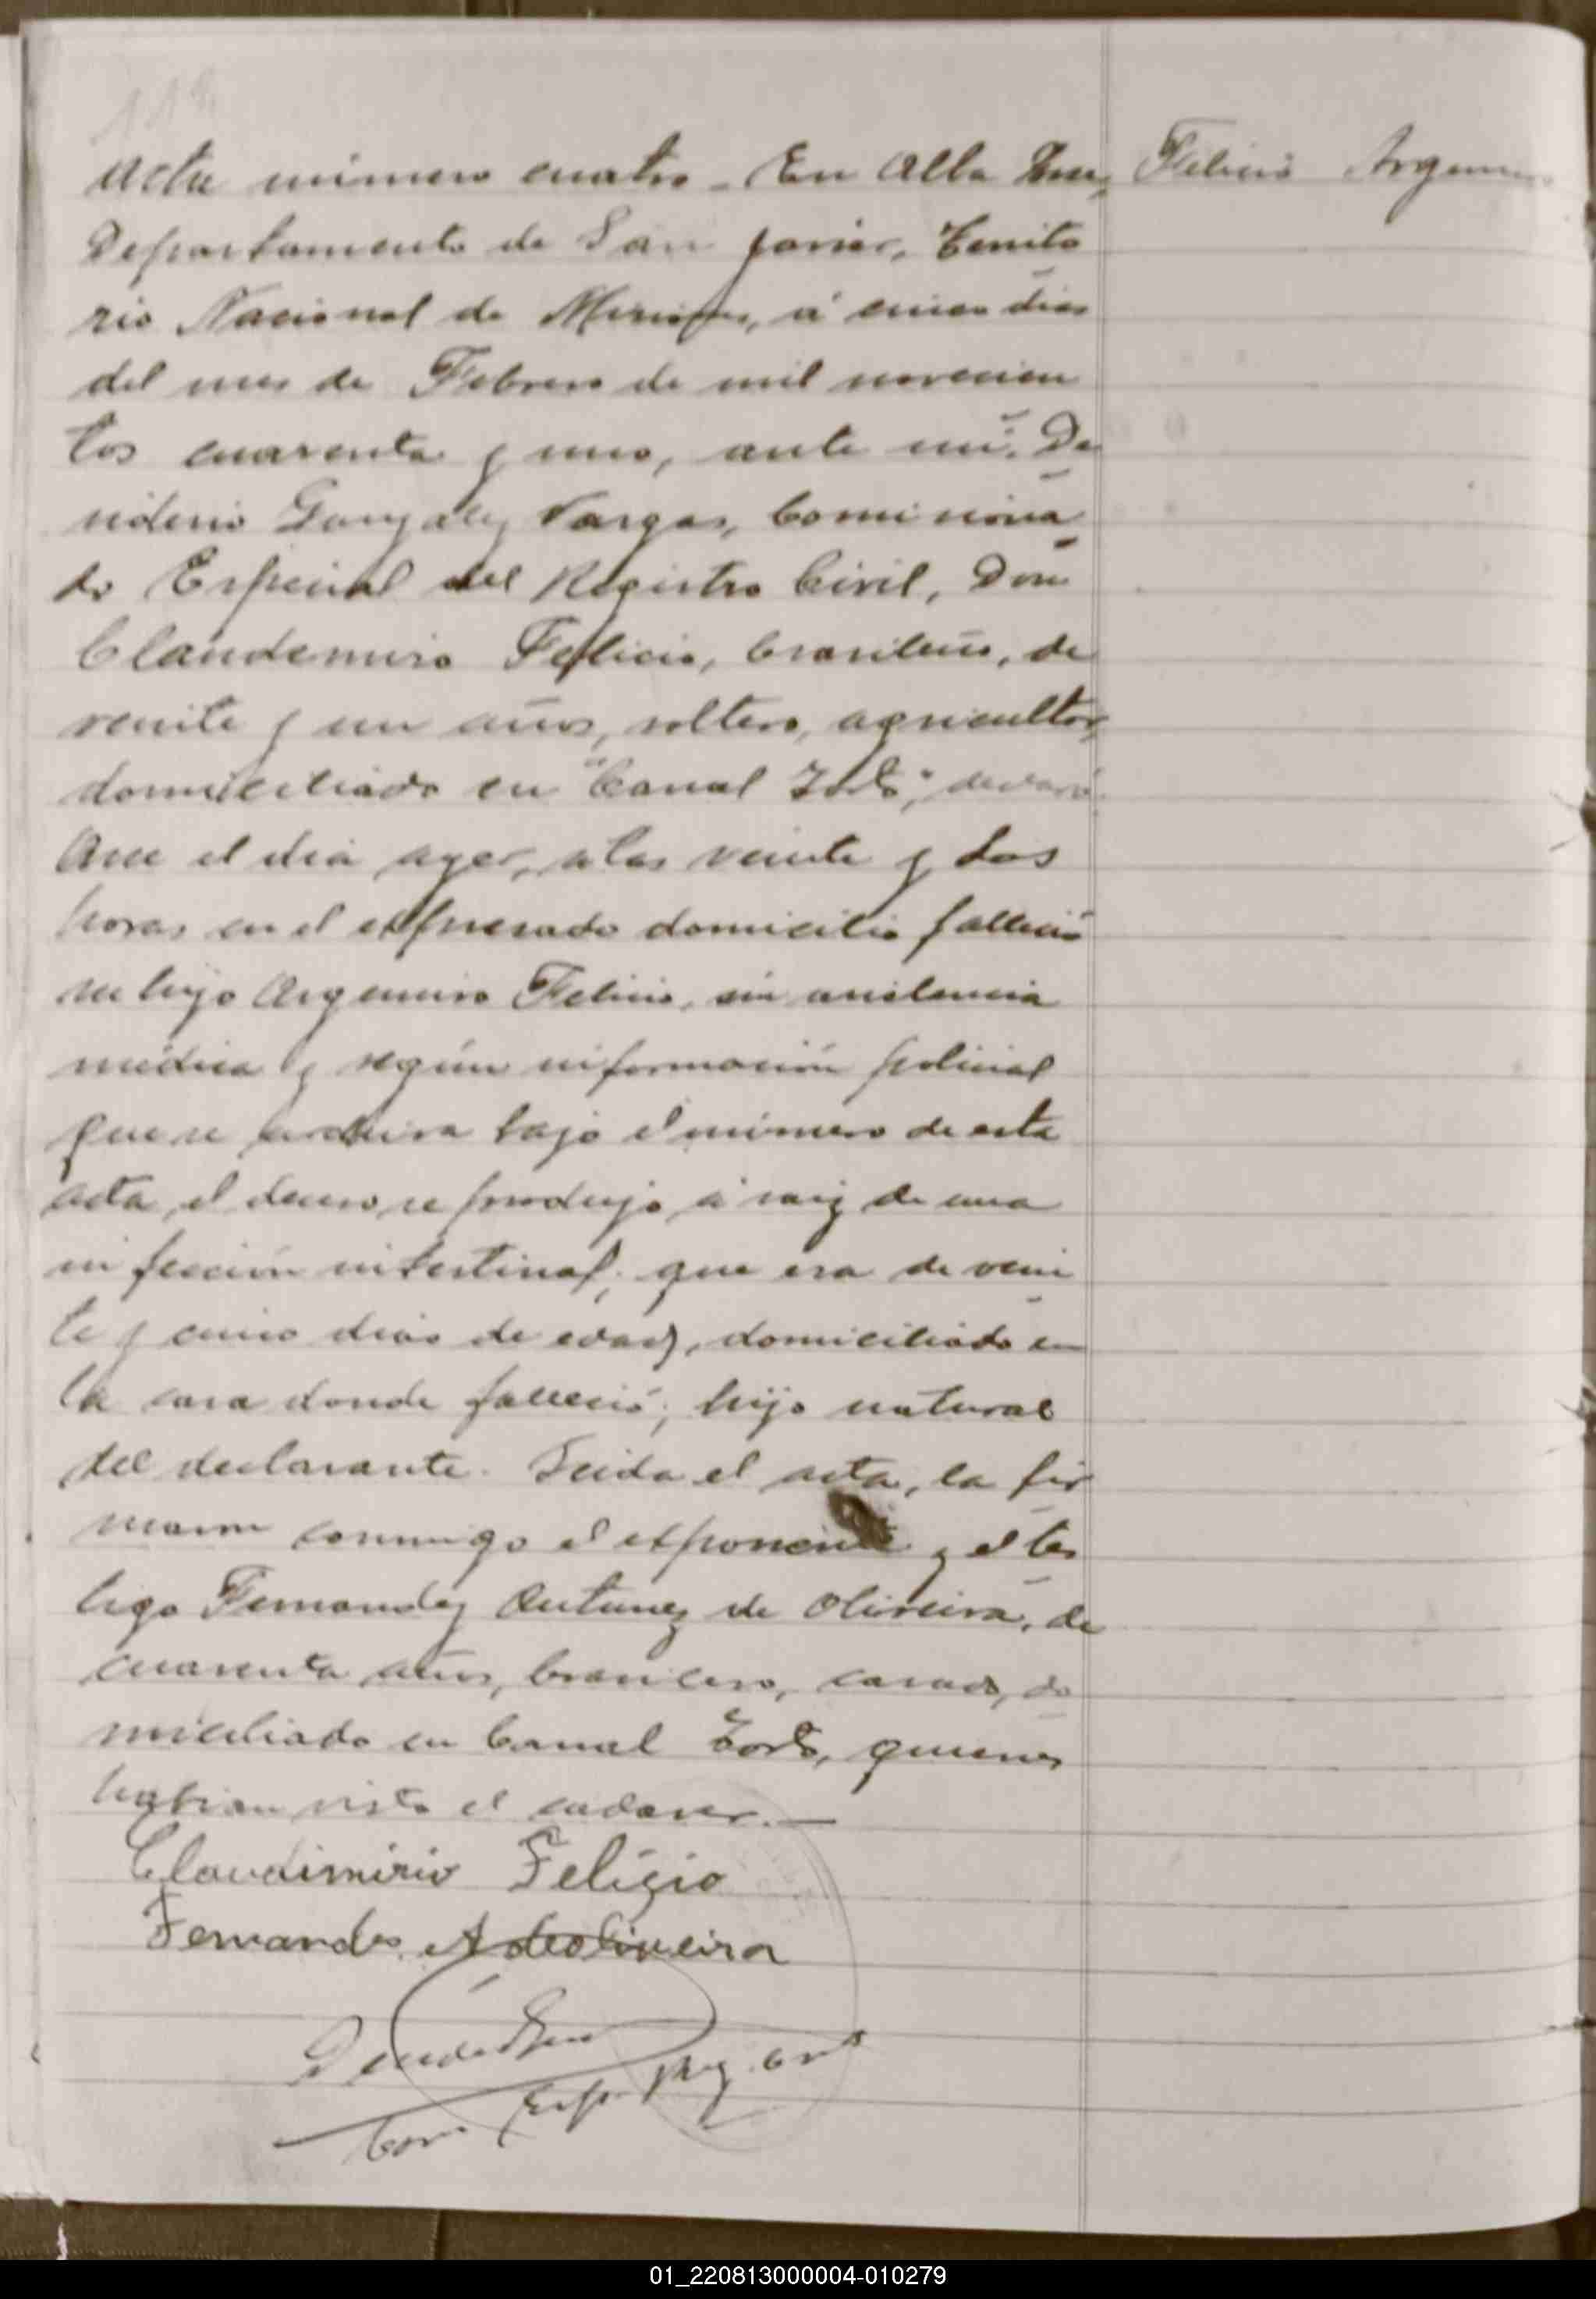 Acta número cuatro - En Alba Posse, Felicio Argemiro
Departamento de San Javier, Territo
rio Nacional de Misiones, á cinco dias
del mes de Febrero de mil novecien
tos cuarenta y uno, ante mí, De
siderio Gonzalez Vargas, Comisiona
do Especial del Registro Civil, Don
Claudemiro Felicio, brasileño, de
veinte y un años, soltero, agricultor,
domiciliado en "Canal Torto", declaró:
Que el dia ayer, a las veinte y dos
horas en el expresado domicilio falleció
su hijo Argemiro Felicio, sin asistencia
médica y según información policial
que se archiva bajo el número de esta
acta, el deceso se produjo á raiz de una
infección intestinal; que era de vein
te y cinco dias de edad, domiciliado en
la casa donde falleció; hijo natural
del declarante. Leida el acta, la fir
maron conmigo el exponente y el tes
tigo Fernandez Antunez de Oliveira, de
cuarenta años, brasilero, casado, do
miciliado en Canal Torto, quienes
habian visto el cadaver.—
Claudimirio Feligio
Fernandes A deoliveira
Com. Esp. Reg. Civil
01_220813000004-010279